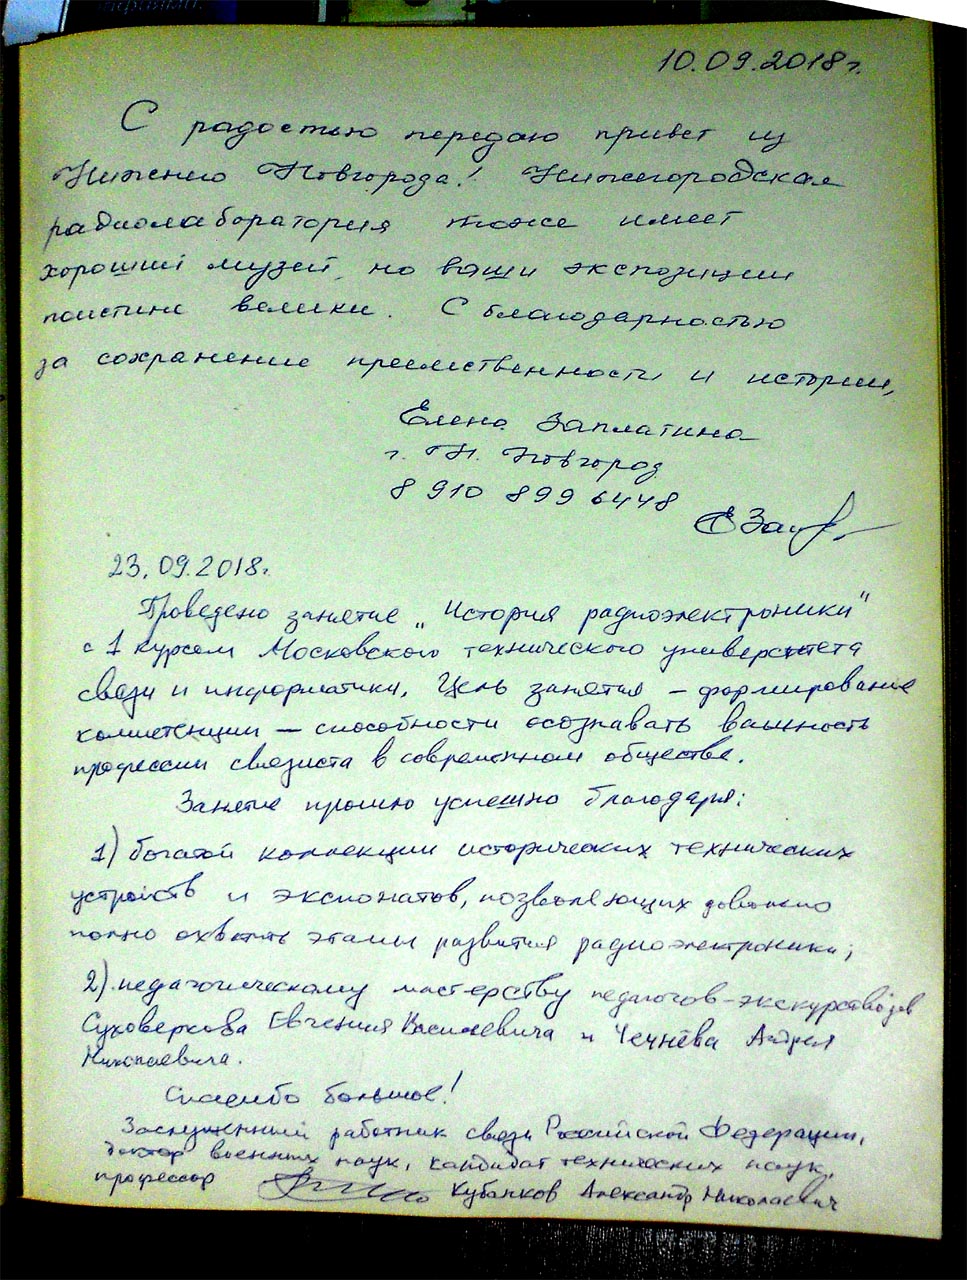 10.09.2018г.
С радостью передаю привет из
Нижнего Новгорода! Нижегородская
радиолаборатория тоже имеет
хороший музей, но ваши экспозиции
поистине велики. С благодарностью
за сохранение преемственности и истории,
Елена Заплатина
г. Н. Новгород
8 910 899 6448
23.09.2018г.
Проведено занятие „История радиоэлектроники"
с 1 курсом Московского технического университета
связи и информатики. Цель занятия – формирование
компетенции – способности осознавать важность
профессии связиста в современном обществе.
Занятие прошло успешно благодаря:
1) богатой коллекции исторических технических
устройств и экспонатов, позволяющих довольно
полно охватить этапы развития радиоэлектроники;
2) педагогическому мастерству педагогов-экскурсоводов
Суховеркова Евгения Васильевича и Чечнёва Андрея
Николаевича.
Спасибо большое!
Заслуженный работник связи Российской Федерации,
доктор военных наук, кандидат технических наук,
профессор Кубанков Александр Николаевич